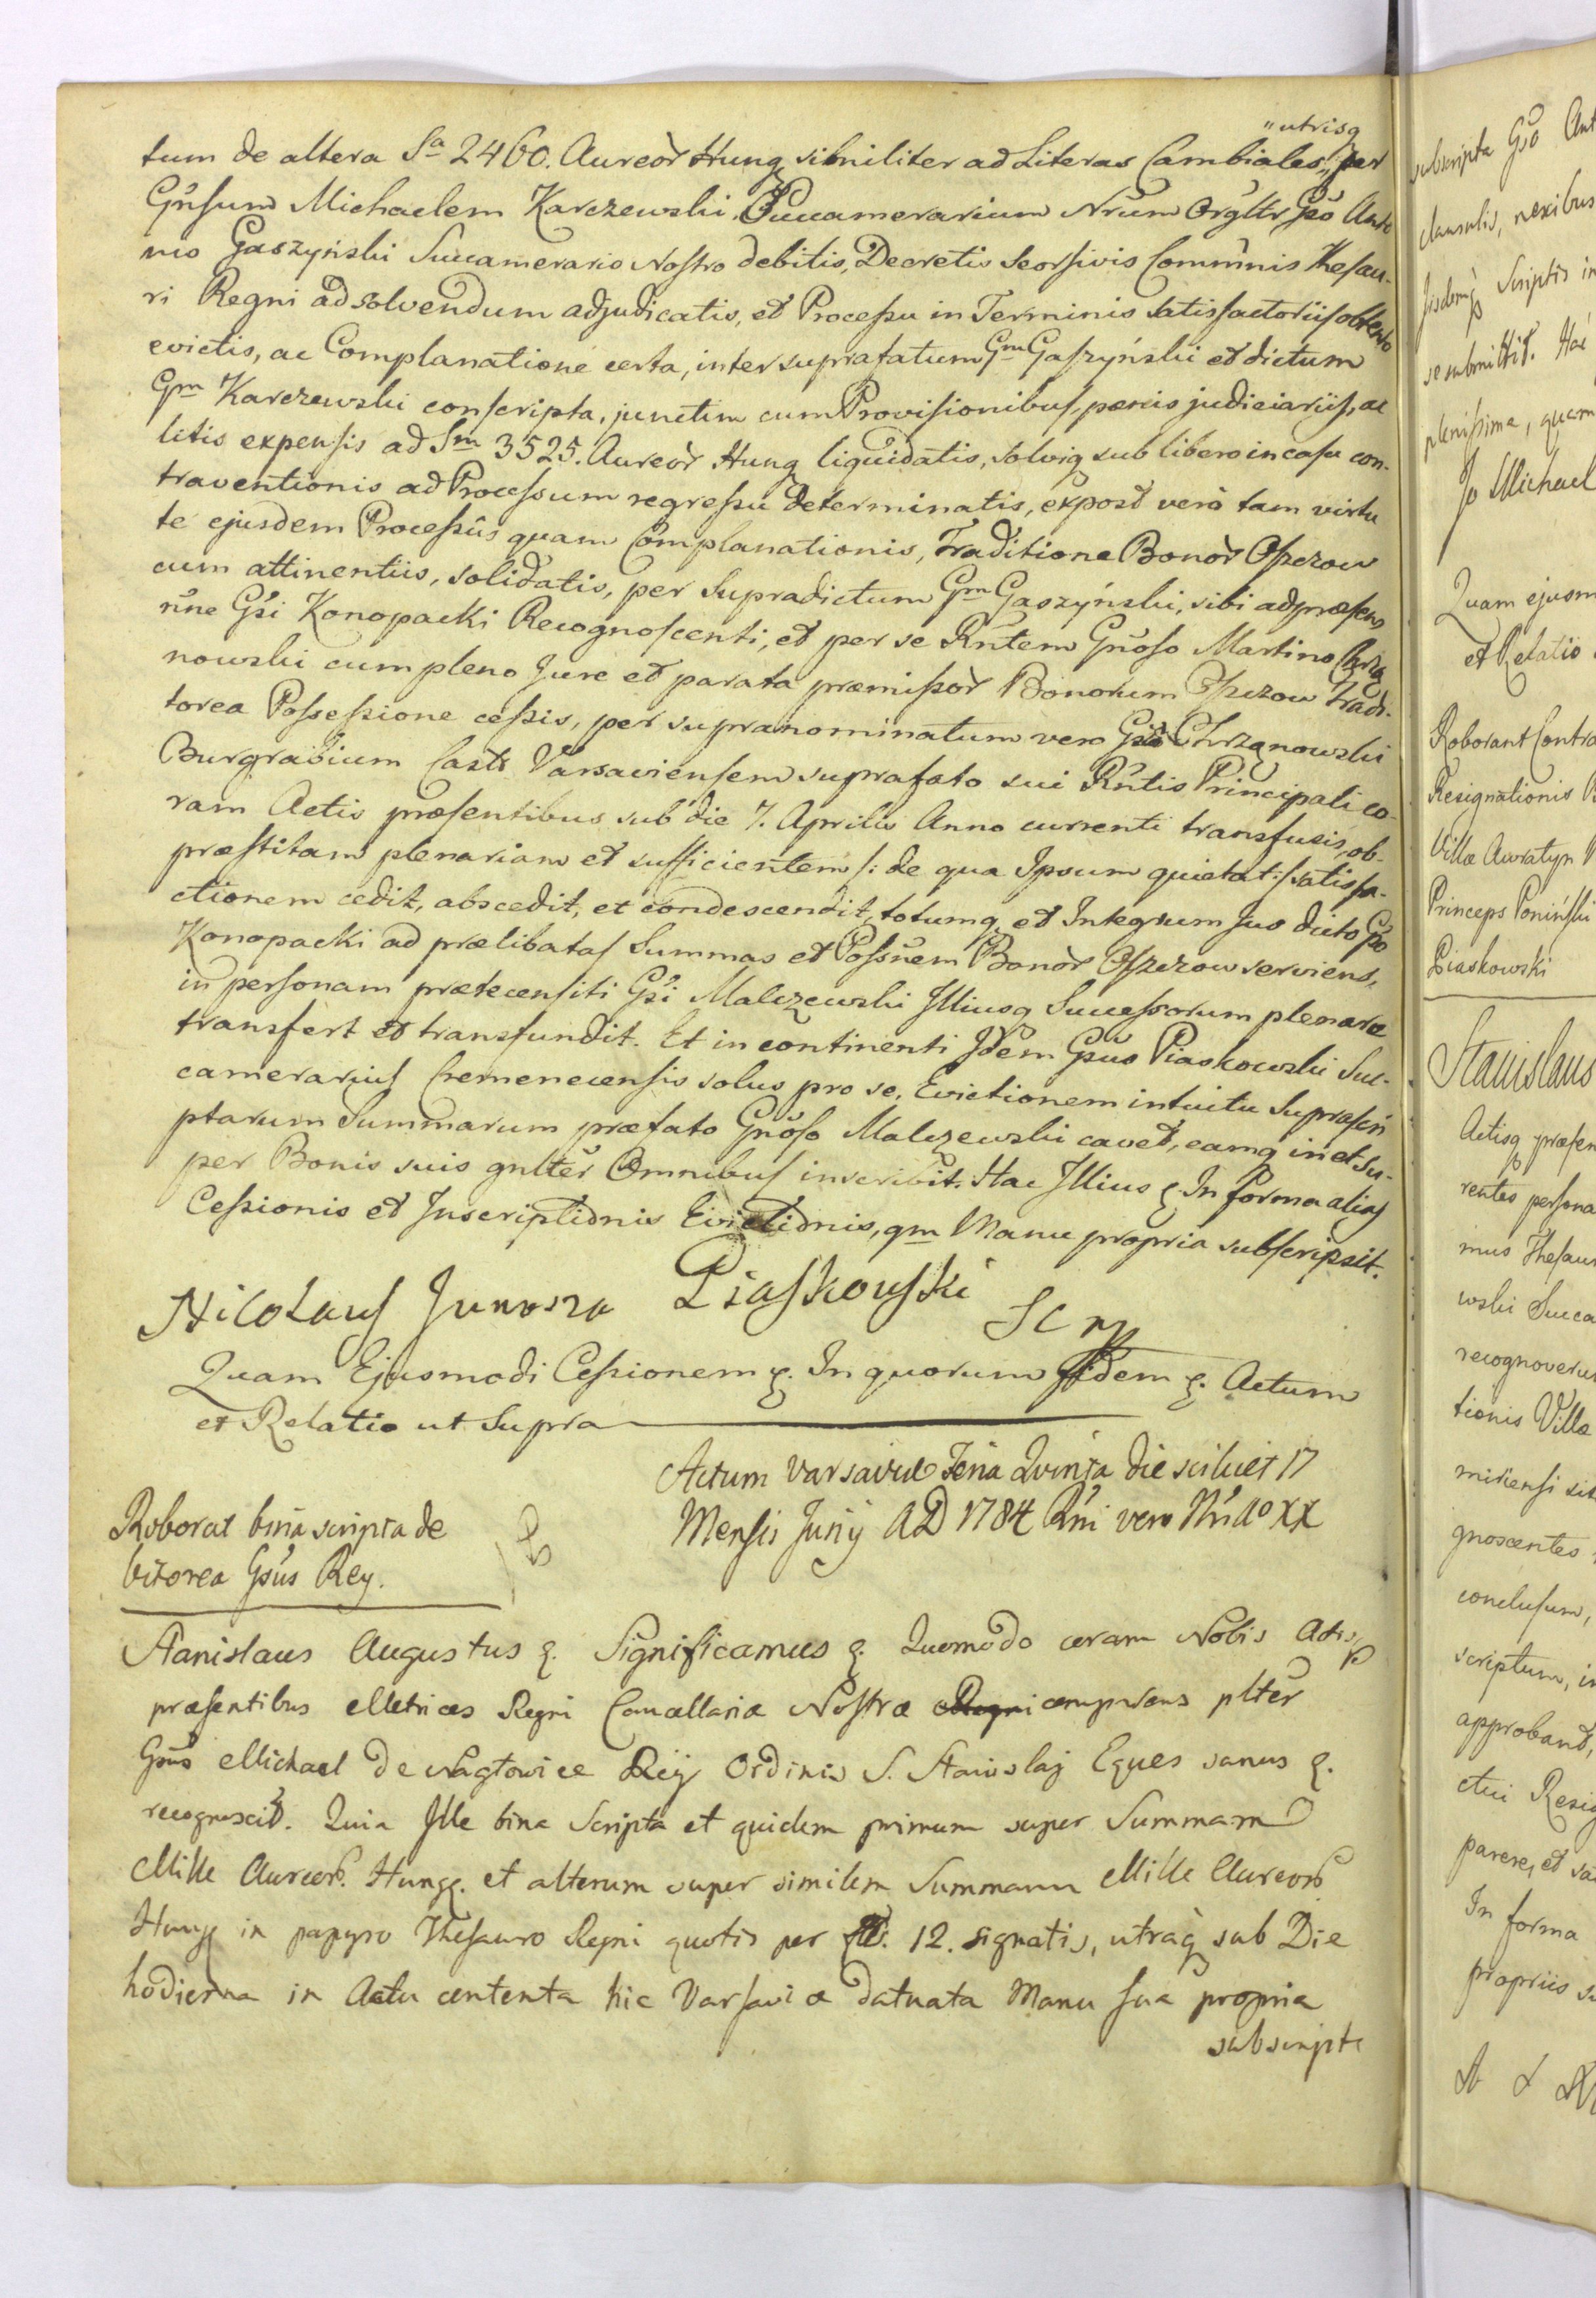 "utrisq
tum de altera Sã 2460. Aureor̃ Hung. similiter ad Literas Cambiales, "per
Gn̄sum Michaelem Karczewski, Succamerarium Nrūm Gsō Anto
nio Gaszyński Succamerario Nostro debitis, Decretis seorsivis Commīnis Thesau-
ri Regni ad solvendum adjudicatis, et Processu in Terminis satisfactoriis obtento
evictis, ac Complanatione certa, inter suprafatum Gm Gaszyński et dictum
Gm Karczewski conscripta, junctim cum Provisionibus, pœnis judiciariis, ac
litis expensis ad Sm 3525. Aureor̃ Hung liquidatis, solviq sub libero in casu con-
traventionis ad Processum regressu determinatis, expost verò tam virtu
te ejusdem Processûs quam Complanationis, Traditione Bonor̃ Opszow
cum attinentiis, solidatis, per Supradictum Gm Gaszyński, sibi ad præsens
rīne Gsi Konopacki Recognoscenti, et per se Rn̄tem Gnōso Martino Chrzą
nowski cum pleno Jure et parata præmissor̃ Bonorum Opszow Tradi-
torea Possessione cessis, per supranominatum vero Gsō Chrząnowski
Burgrabium Castr Varsaviensem suprafato sui Rn̄tis Principali co-
ram Actis præsentibus sub die 7. Aprilis Anno currenti transfusis, ob-
præstitam plenariam et sufficientem /: de qua Ipsum quietat :/ satisfa-
ctionem cedit, abscedit, et condescendit, totumq et Integrum Jus dicto Gsō
Konopacki ad prælibatas Summas et Possn̄em Bonor̃ Opszow serviens,
in personam præcensiti Gsi Malczewski Illiusq Successorum plenare
transfert et transfundit. Et in continenti Idem Gsus Piaskowski Suc-
camerarius Cremenecensis solus pro se, Evictionem intuitu Suprascri
ptarum Summarum præfato Gnōso Malczewski cavet, eamq in et su-
per Bonis suis gnlter Omnibus inscribit. Hac Illius &. In forma alias
Cessionis et Inscriptionis Evictionis, qm Manu propria subscripsit.
Nicolaus Junosza Piaskowski Scrp
Quam Ejusmodi Cessionem &. In quorum fidem &. Actum
et Relatio ut Supra
Actum Varsaviæ Feria Quinta die scilicet 17
Mensis Junij AD 1784 Rni vero Nri Ao XX
Roborat bina scripta de
bitorea Gsus Rey.
Stanislaus Augustus &. Significamus &. Quomodo coram Nobis Actisq
præsentibus Metrices Regni Cancellariæ Nostræ Regni comparens plter
Gsus Michael de Nagłowice Rey Ordinis S. Stanislaj Eques sanus &.
recognoscit. Quia Ille bina Scripta et quidem primum super Summam
Mille Aureor. Hung. et alterum super similem Summam Mille Aureor.
Hung in papyro Thesauro Regni quotis per 12. signatis, utraq sub Die
hodierna in Actu contenta hic Varsaviæ datuata Manu sua propria
subscripta
subscripta Gsō Ant
clausulis, nexibus
Scriptis in
se submittit. Hac
plenissime, quam
Jo Michael
Quam ejusm
et Relatio
Roborant Contra
Resignationis
Villæ Awratyn
Princeps Poniński
Piaskowski
Stanislaus
Actisq præsen
rentes persona
mus Thesaur
wski Succa
recognoverun
tionis Villæ
miriensi sit
gnoscentes
conclusum,
scriptum, in
approband,
ctui Resig
parere, et sa
In forma
propriis su